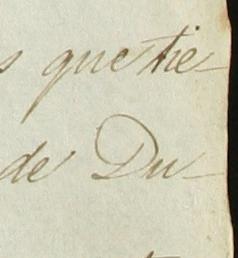 s que tie-
de Du-